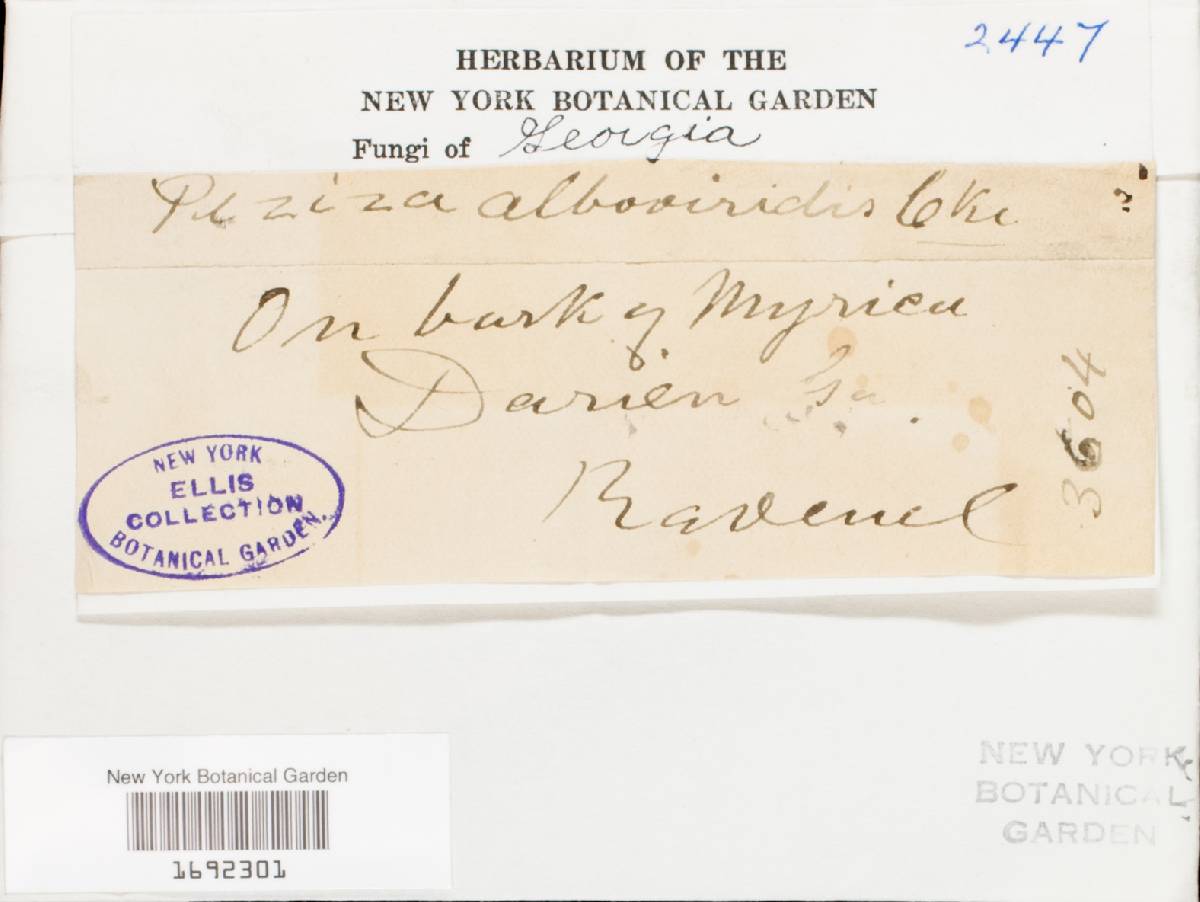 2447
HERBARIUM OF THE
NEW YORK BOTANICAL GARDEN
Fungi of Georgia
Peziza alboviridis Cke
On bark of Myrica
Darien Ga.
Ravenel
3604
NEW YORK
ELLIS
COLLECTION
BOTANICAL GARDEN.
New York Botanical Garden
1692301
NEW YORK
BOTANICAL
GARDEN